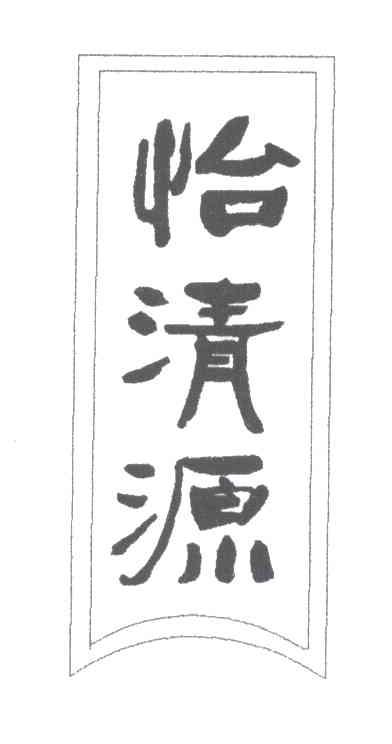 怡清源